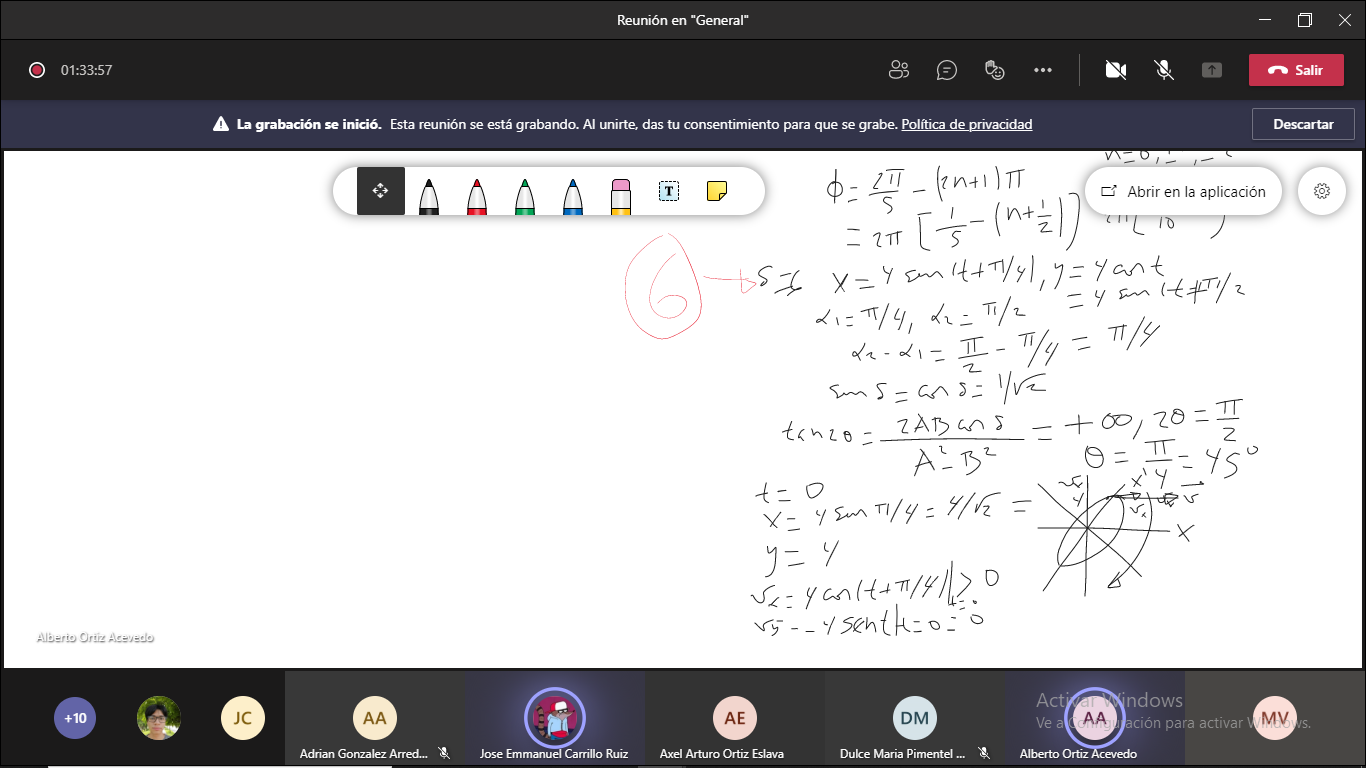 Reunión en "General"
01:33:57
Salir
La grabación se inició. Esta reunión se está grabando. Al unirte, das tu consentimiento para que se grabe. Política de privacidad
Descartar
T
Abrir en la aplicación
ϕ = 2π/5 - (2n+1)π
= 2π [1/5 - (n+1/2)]
10
6 → δ=
x = 4 sen(t+π/4), y = 4 cos t
= 4 sen(t+π/2
α1 = π/4, α2 = π/2
α2 - α1 = π/2 - π/4 = π/4
sen δ = cos δ = 1/√2
tan 2θ = 2AB cos δ / A² - B² = +∞, 2θ = π/2
θ = π/4 = 45°
t = 0
x = 4 sen π/4 = 4/√2 =
y = 4
x'
X
vx = 4 cos(t+π/4)|t=0 > 0
vy = -4 sen t|t=0 = 0
Alberto Ortiz Acevedo
+10
JC
AA
Adrian Gonzalez Arred...
Jose Emmanuel Carrillo Ruiz
AE
Axel Arturo Ortiz Eslava
DM
Dulce Maria Pimentel ...
AA
Alberto Ortiz Acevedo
MV
Activar Windows
Ve a Configuración para activar Windows.